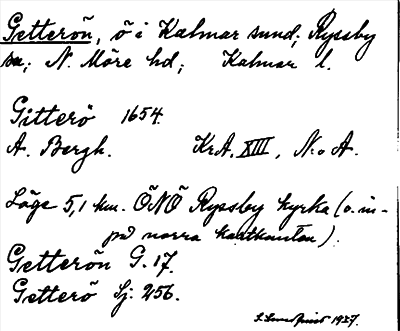 Getterön, ö i Kalmar sund; Ryssby
sn; N. Möre hd; Kalmar l.
Gitterö 1654.
A. Bergh. KrA, XIII, N:o A.
Läge 5,1 km. ÖNÖ Ryssby kyrka (o. in-
på norra kartkanten).
Getterön G. 17.
Getterö Sj. 256.
1927.